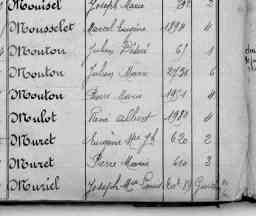 Mouisel Joseph Marie
Mousselet Marcel Eugène 1894 4
Mouton Julien Désiré 61 4
Mouton Julien Marie 2730 6
Mouton Pierre Marie 1951 4
Mulot René Albert 1980 4
Muret Eugène Mie Jh 620 2
Muret Pierre Marie 610 3
Muriel Joseph Mie Louis